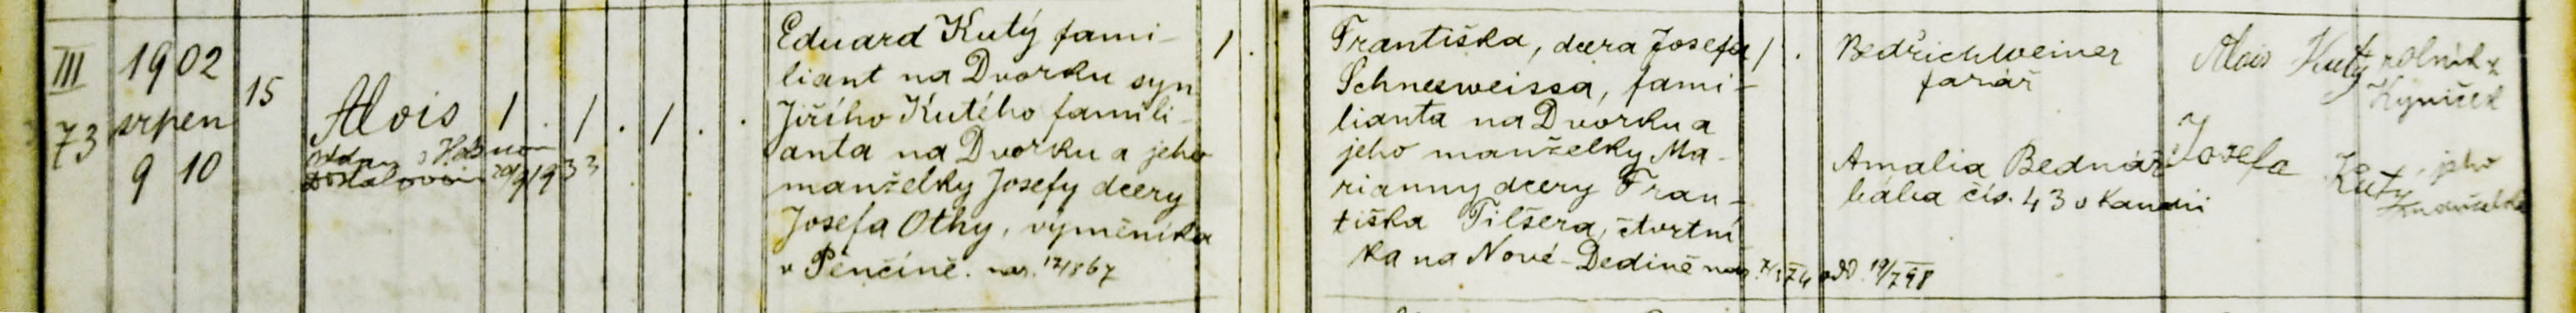 III
73
1902
srpen
9 10
15
Alois
1 . / . / . .
20/9/1933
Eduard Kutý fami-
liant na Dvorku syn
Jiřího Kutého famili-
anta na Dvorku a jeho
manželky Josefy dcery
Josefa Othy, výměníka
v Pěnčíně. nar.
1 .
Františka, dcera Josefa
Schneeweissa, fami-
lianta na Dvorku a
jeho manželky Ma-
rianny dcery Fran-
tiška Tilšera, čtvrtní-
ka na Nové-Dědině nar.
/ .
Bedřich Weiner
farář
Amalia Bednář
bába čís. 43 v
Alois Kutý rolník z
Josefa Kuty, jeho
manželka